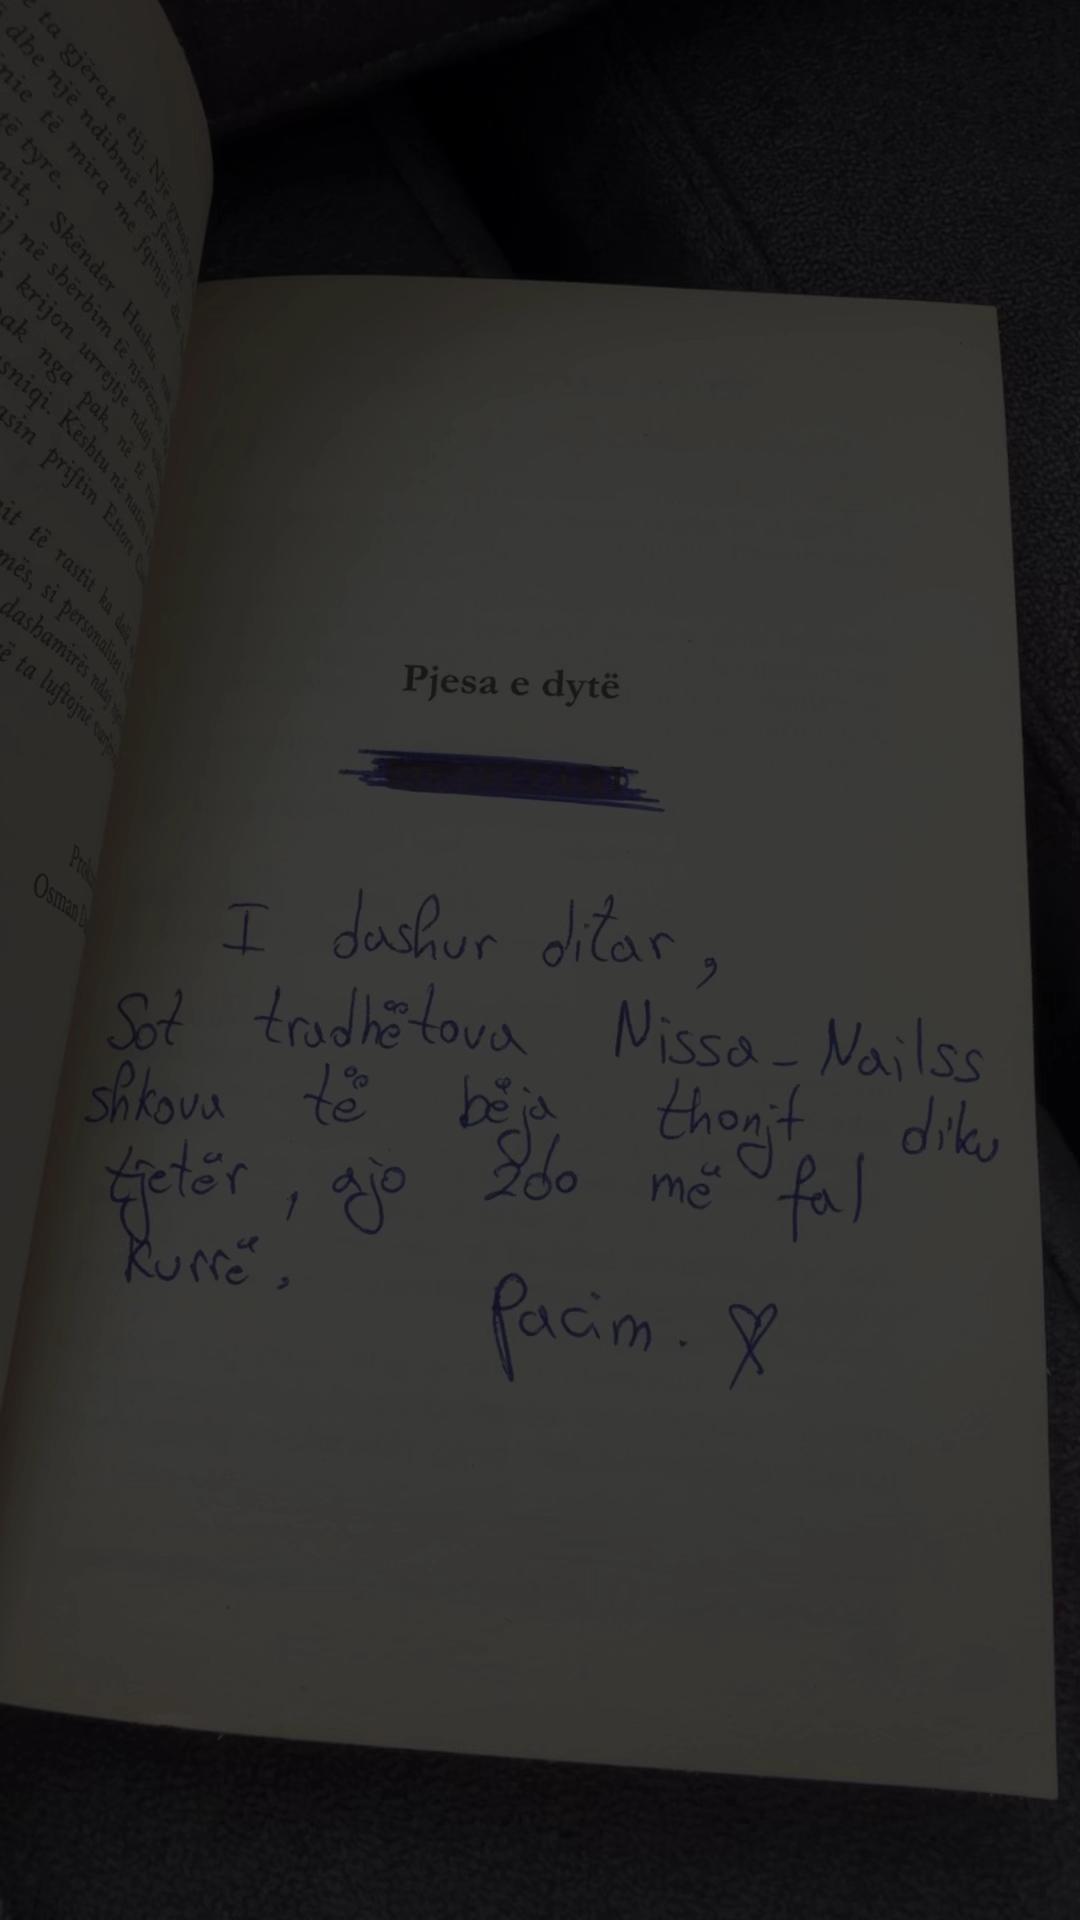 ta gjërat e tij. Një
dhe një ndihmë për fëmijët
nie të mira me fqinjët dhe
të tyre.
mit, Skënder Hasku,
ij në shërbim të njerëzve
krijon urrejtje ndaj
pak nga pak, në të
sniqi. Kështu në natën
asin priftin Ettore
it të rastit ka dalë
mës, si personalitet i
dashamirës ndaj
ë ta luftojnë
Osman
Pjesa e dytë
I dashur ditar,
Sot tradhëtova Nissa-Nailss
shkova të bëja thonjt diku
tjetër, ajo sdo më fal
kurrë.
Pacim.